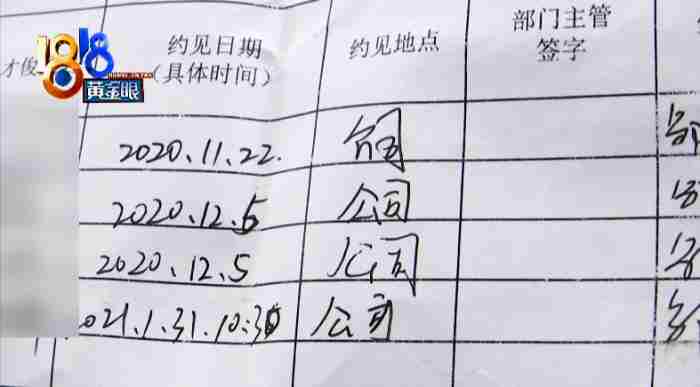 1818
黄金眼
才俊
约见日期
(具体时间)
约见地点
部门主管
签字
2020.11.22. 公司
2020.12.5 公司
2020.12.5 公司
021.1.31.10:30 公司